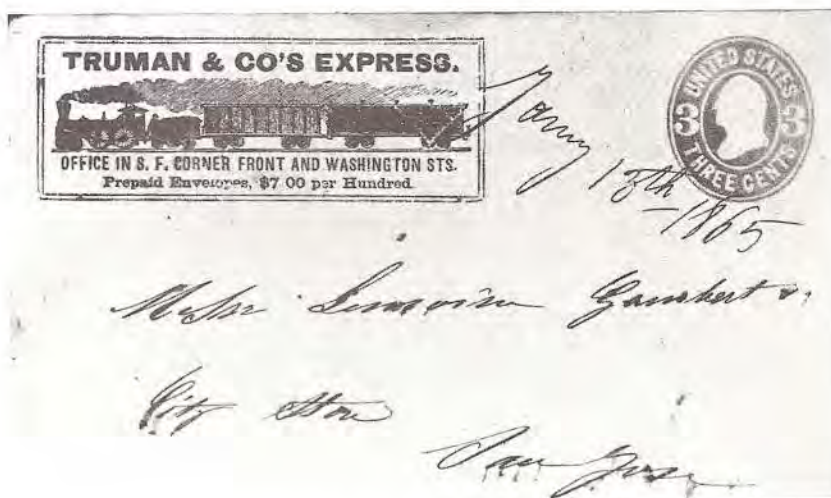 TRUMAN & CO'S EXPRESS.
OFFICE IN S. F. CORNER FRONT AND WASHINGTON STS.
Prepaid Envelopes, $7 00 per Hundred.
UNITED STATES
3 3
THREE CENTS
Jany 13th
-1865
Messr
City Store
San Jose